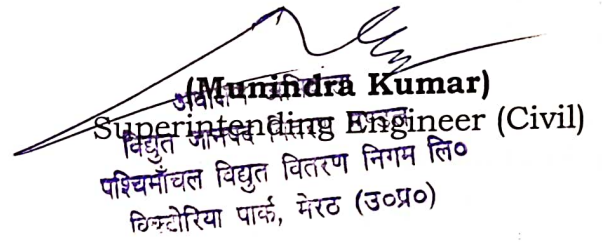 (Munindra Kumar)
Superintending Engineer (Civil)
विद्युत जानपद वितरण मण्डल
पश्चिमाँचल विद्युत वितरण निगम लि०
विक्टोरिया पार्क, मेरठ (उ०प्र०)